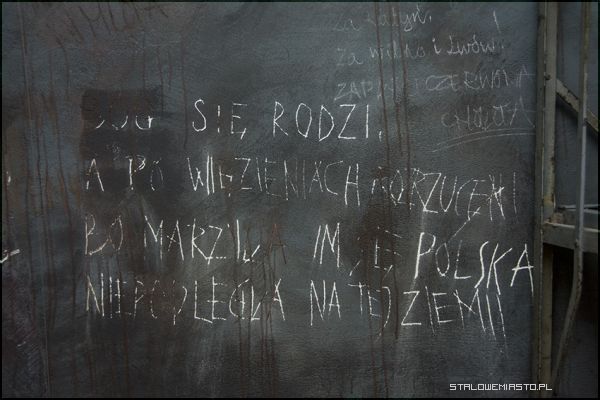 Za Katyń.
Za wilno i Lwów!
ZAPŁ CZERWONA
CHOŁOTA
BÓG SIĘ RODZI,
A PO WIĘZIENIACH ROZRZUCENI
BO MARZYŁA IM SIĘ POLSKA
NIEPODLEGŁA NA TEJ ZIEMI
STALOWEMIASTO.PL